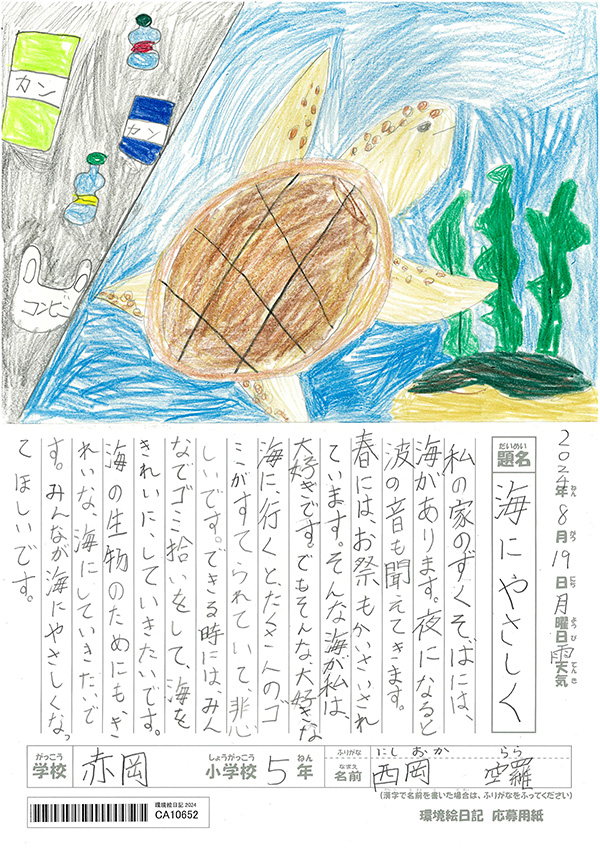 カン
カン
コンビニ
2024年ねん8月がつ19日にち月曜日ようび雨天気てんき
だいめい
題名
海にやさしく
私の家のずくそばには、
海があります。夜になると
波の音も聞えてきます。
春には、お祭もかいさいされ
ています。そんな海が私は、
大好きです。でもそんな、大好きな
海に、行くと、たくさんのゴ
ミがすてられていて、悲
しいです。できる時には、みん
なでゴミ拾いをして、海を
きれいに、していきたいです。
海の生物のためにも、き
れいな、海にしていきたいで
す。みんなが海にやさしくなっ
てほしいです。
がっこう
学校
赤岡
しょうがっこう
小学校
5
ねん
年
ふりがな
なまえ
名前
にしおか
らら
西岡
空羅
(漢字で名前を書いた場合は、ふりがなをふってください)
環境絵日記 2024
CA10652
環境絵日記 応募用紙